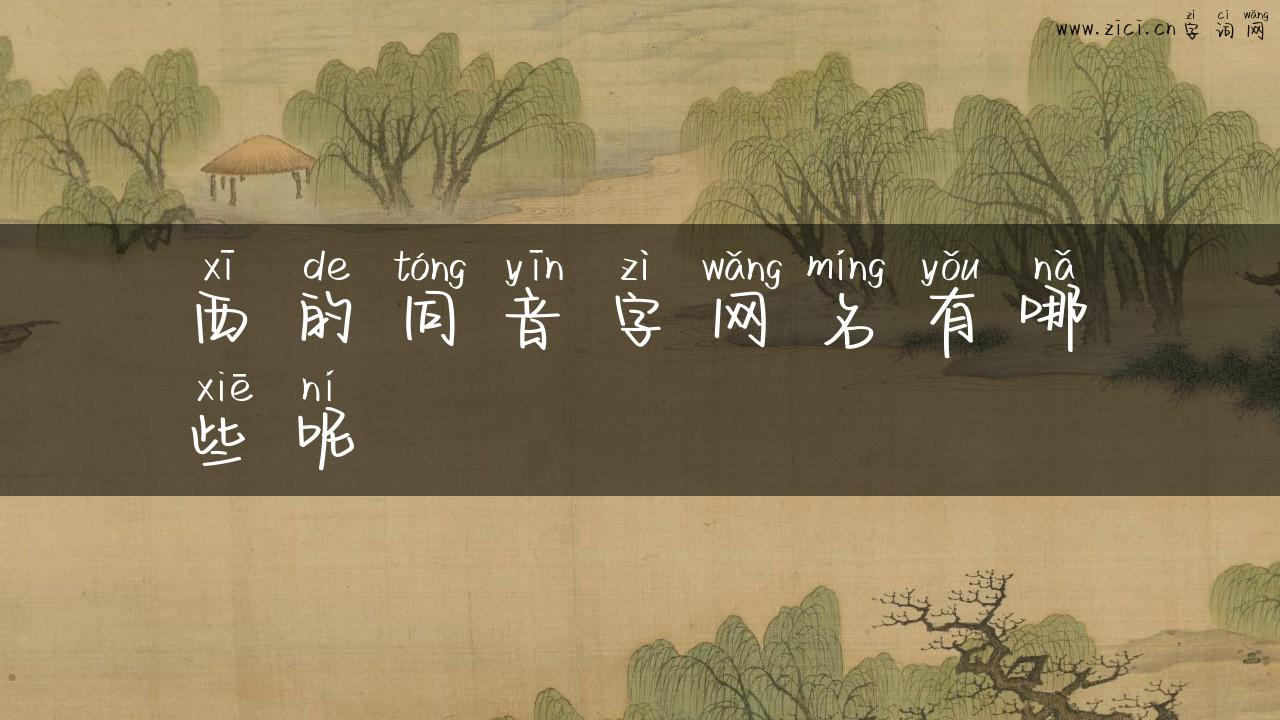 zì cí wǎng
www.zici.cn 字词网
xī de tóng yīn zì wǎng míng yǒu nǎ
西的同音字网名有哪
xiē ní
些呢